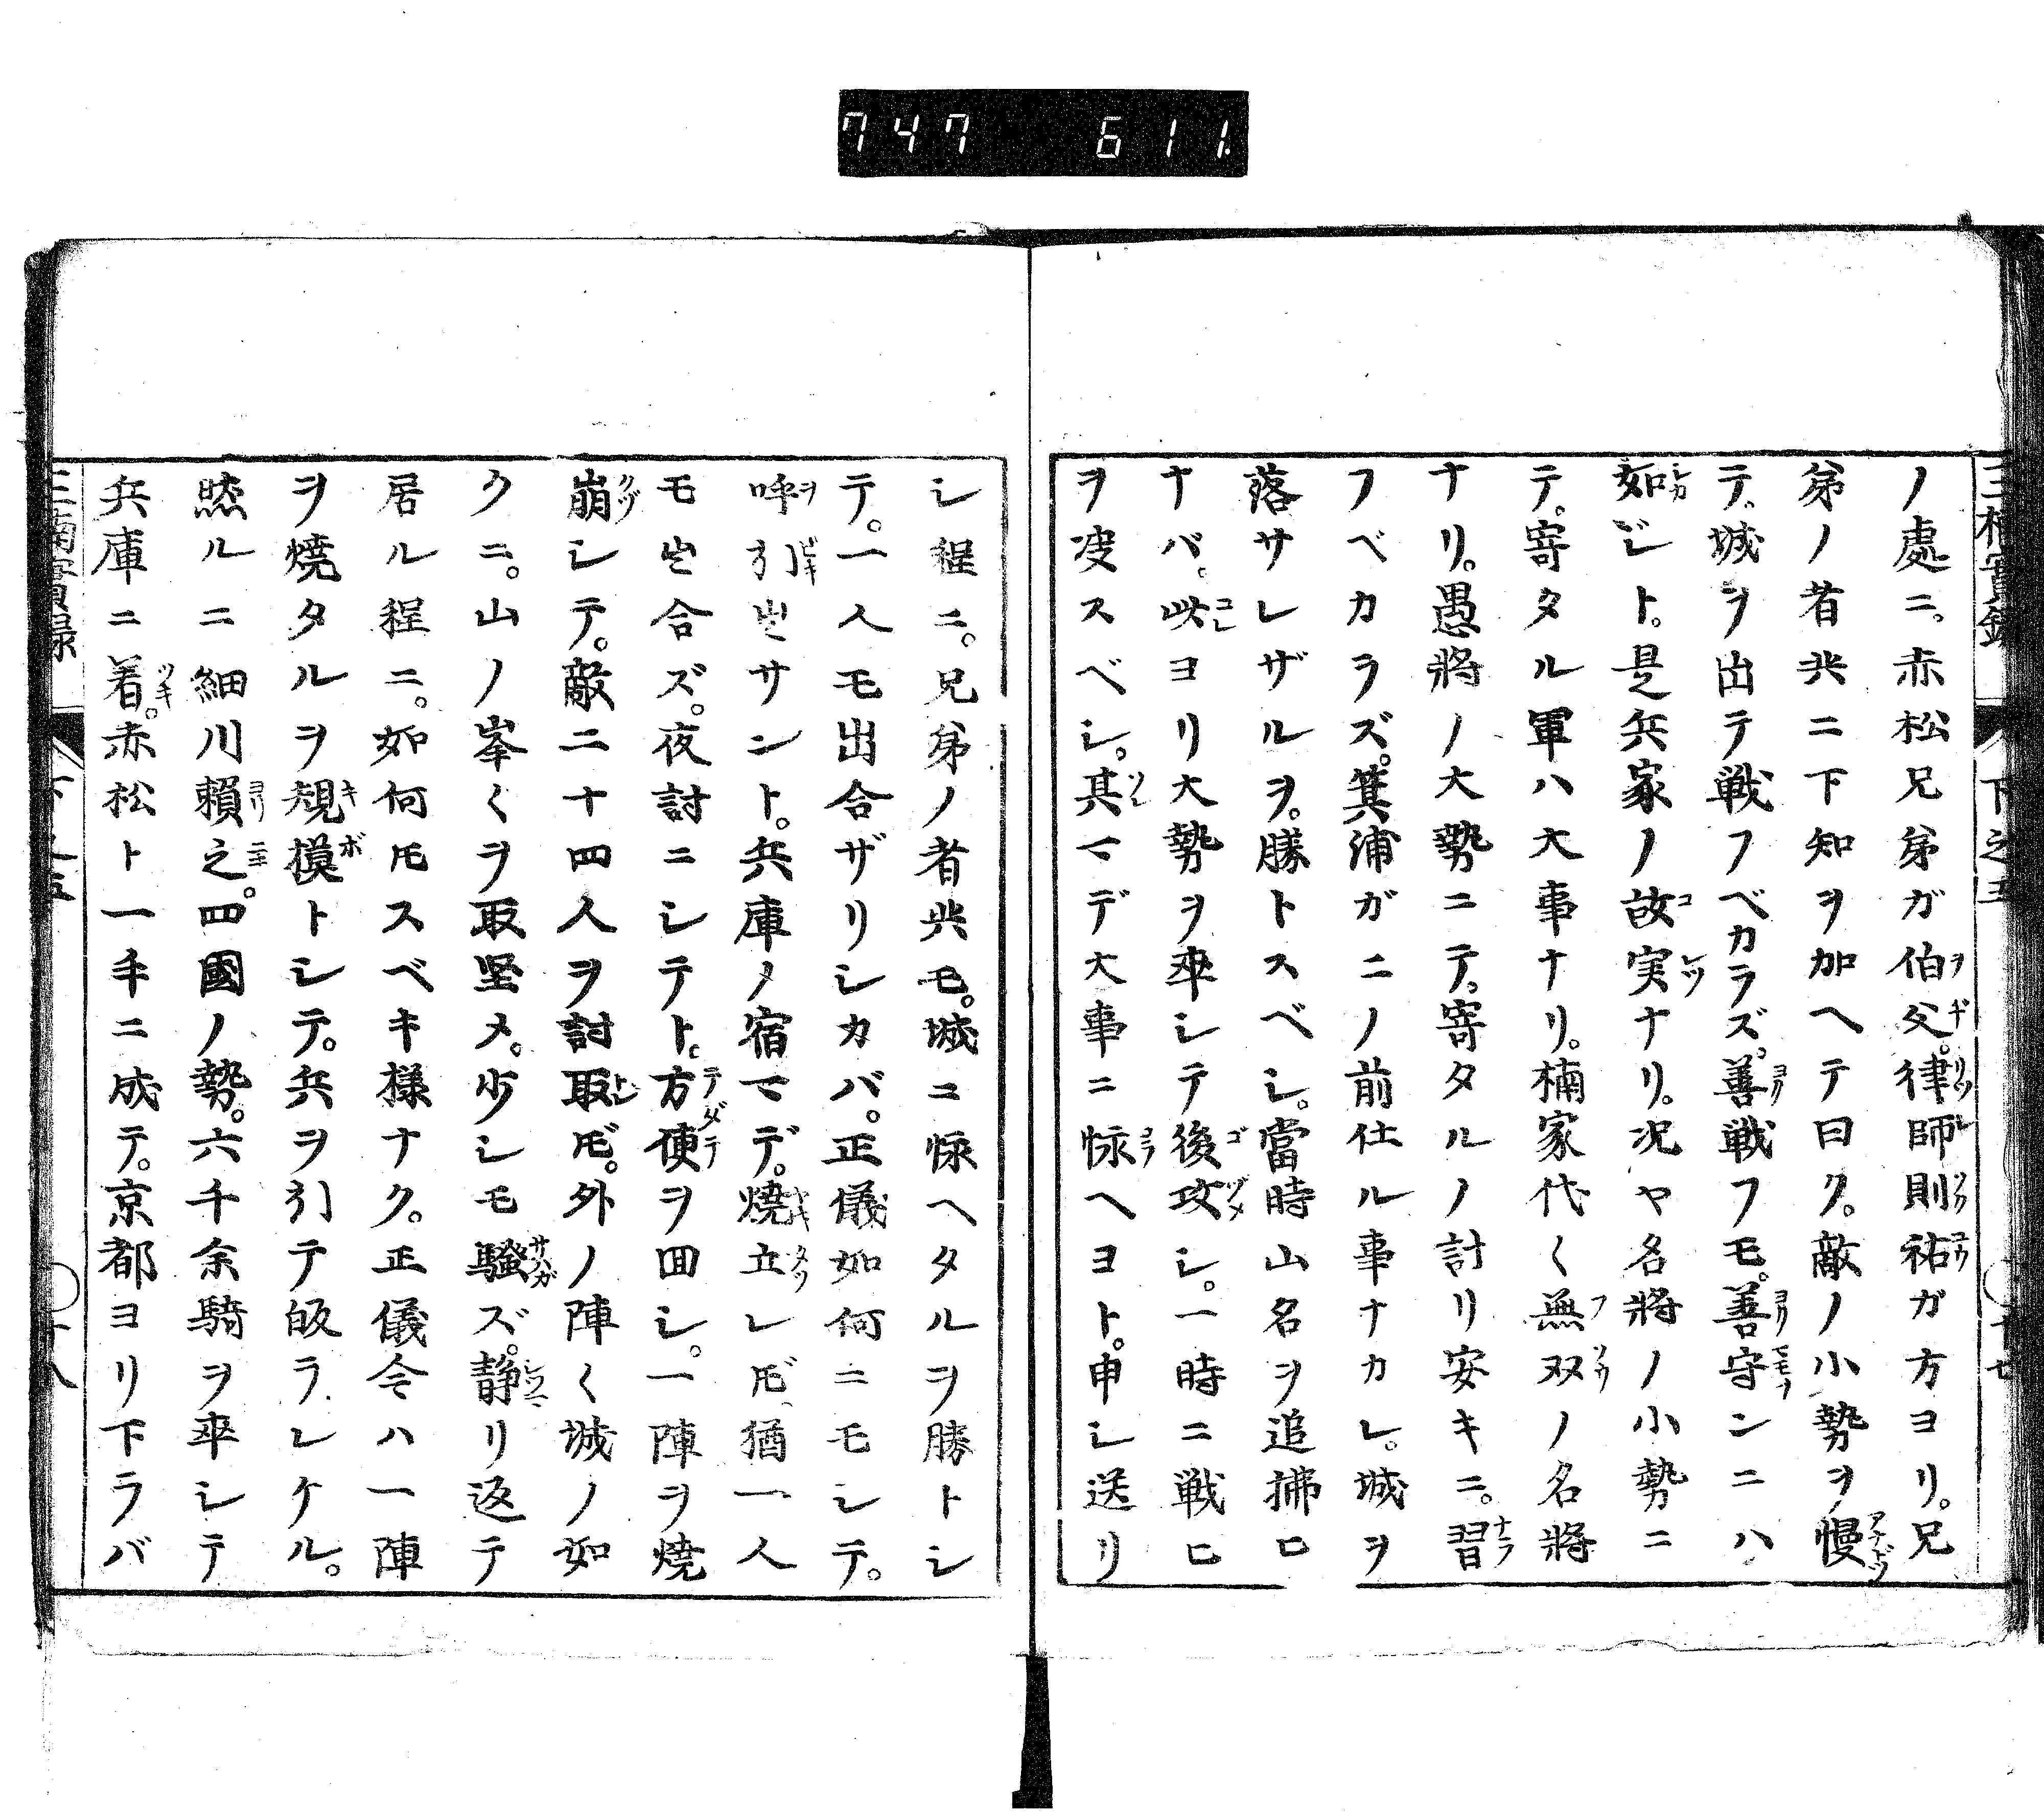 747 611
三楠實録 下之五 十七
ノ處ニ。赤松兄弟ガ伯父。律師則祐ガ方ヨリ。兄
弟ノ者共ニ下知ヲ加ヘテ曰ク。敵ノ小勢ヲ慢
テ。城ヲ出テ戦フベカラズ。善戦フモ。善守ンニハ
如ジト。是兵家ノ故実ナリ。况ヤ名將ノ小勢ニ
テ。寄タル軍ハ大事ナリ。楠家代〱無双ノ名將
ナリ。愚將ノ大勢ニテ。寄タルノ討リ安キニ。習
フベカラズ。箕浦ガニノ前仕ル事ナカレ。城ヲ
落サレザルヲ。勝トスベシ。當時山名ヲ追拂ヒ
ナバ。此ヨリ大勢ヲ率シテ後攻シ。一時ニ戦ヒ
ヲ决スベシ。其マデ大事ニ怺ヘヨト。申シ送リ
シ程ニ。兄弟ノ者共モ。城ニ怺ヘタルヲ勝トシ
テ。一人モ出合ザリシカバ。正儀如何ニモシテ。
呼引出サント。兵庫ノ宿マデ。焼立レ𪜈。猶一人
モ出合ズ。夜討ニシテト。方便ヲ囬シ。一陣ヲ焼
崩シテ。敵二十四人ヲ討取𪜈。外ノ陣〱城ノ如
クニ。山ノ峯〱ヲ取堅メ。少シモ騒ズ。静リ返テ
居ル程ニ。如何𪜈スベキ様ナク。正儀今ハ一陣
ヲ焼タルヲ規摸トシテ。兵ヲ引テ皈ラレケル。
然ルニ細川頼之。四國ノ勢。六千余騎ヲ率シテ
兵庫ニ着。赤松ト一手ニ成テ。京都ヨリ下ラバ
三楠實録 下之五 十八